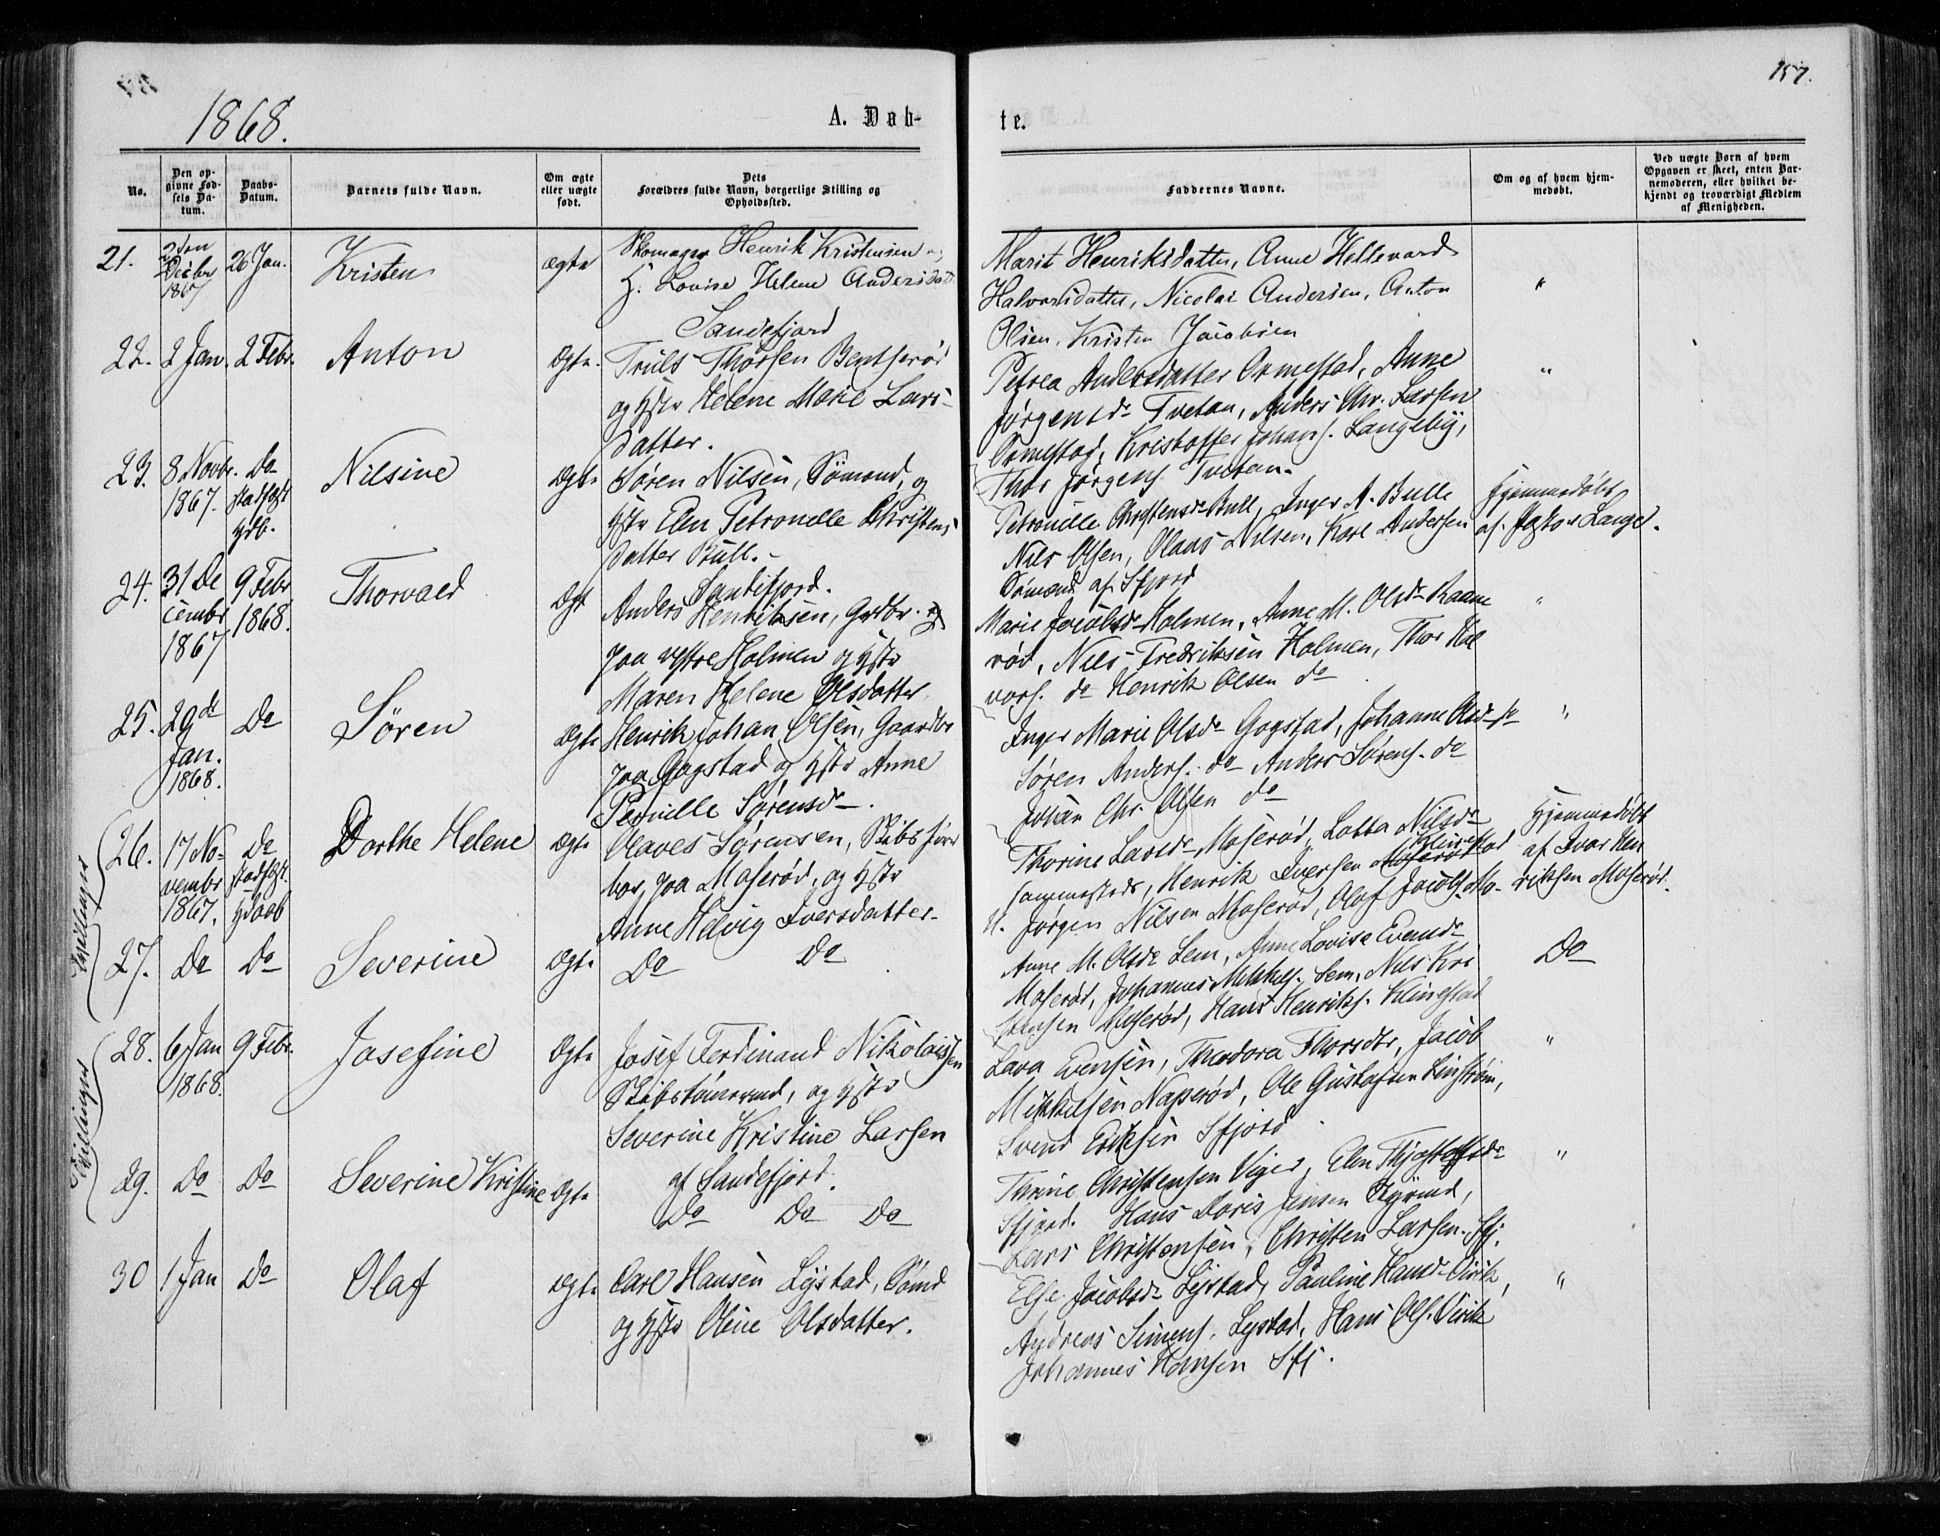 157.
1868.
A. Døb-
te.
No.
Den op-
givne Fød-
sels Da-
tum.
Daabs-
Datum.
Barnets fulde Navn.
Om ægte
eller uægte
født.
Dets
Forældres fulde Navn, borgerlige Stilling og
Opholdssted.
Faddernes Navne.
Om og af hvem hjem-
medøbt.
Ved uægte Børn af hvem
Opgaven er skeet, enten Bar-
nemoderen, eller hvilket be-
kjendt og troværdigt Medlem
af Menigheden.
21.
2den
Decbr
1867
26 Jan.
Kristen
ægte
Skomager Henrik Kristensen
H. Lovise Helene Andersdatt.
Sandefjord
Marit Henriksdatter, Anne Hellevard
Halvorsdatter, Nicolai Andersen, Anton
Olsen, Kristen Jacobsen
"
22.
2 Jan.
2 Febr.
Anton
Ægte
Truls Thorsen Bentserød
og Hstr Helene Marie Lars-
datter.
Petrea Andersdatter Ormestad, Anne
Jørgensdr Tvetan, Anders Chr. Larsen
Ormestad, Kristoffer Johans. Langeby,
Thor Jørgens. Tvetan.
"
23.
8 Novbr.
1867.
Do
stadfæst
hjdb.
Nilsine
Ægte
Søren Nilsen, Sømand, og
Hstr Elen Petronelle Christens
datter Bull.-
Sandefjord.
Petronille Christensdr Bull, Inger A. Bulle
Nils Olsen, Olaus Nilsen, Karl Andersen
Sømænd af Sfjord
Hjemmedøbt
af Pastor Lange.
24.
31 De
cembr
1867
9 Febr
1868.
Thorvald
Ægt
Anders Henriksen, Grdbr. og
paa vestre Holmen og Hstr
Maren Helene Olsdatter
Marie Jacobsdr Holmen, Anne M. Olsdr Raane
rød, Nils Fredriksen Holmen, Thor Hal
vors. do Henrik Olsen do
"
25.
29de
Jan.
1868.
Do
Søren
Ægte
Henrik Johan Olsen, Gaardbr
paa Gogstad og Hstr Anne
Pernille Sørensdr.
Inger Marie Olsdr Gogstad, Johanne Olsdr do
Søren Anders. do Anders Sørens. do
Johan Chr. Olsen do
"
Tvillinger
26.
17 No-
vembr
1867.
Do
stadfæst.
hjdaab
Dorthe Helene
Ægte
Olaves Sørensen, Skibsfører
paa Moserød, og Hstr
Anne Helvig Iversdatter
Thorine Larsdr Moserød, Lotta Nilsdr
sammesteds, Henrik Iversen Klinestad
Jørgen Nilsen Moserød, Olaf Jacobs. Mo-
Hjemmedøbt
af Ivar Hen
riksen Moserød.
27.
Do
Do
Severine
Ægte
Do Do
Anne M. Olsdr Sem, Anne Lovise Evensdr
Moserød, Johannes Mikkels. Sem, Nils Kri
stensen Moserød, Hans Henriks. Klinestad
Do
Tvillinger
28.
6 Jan
1868.
9 Febr.
Josefine
Ægte
Josef Ferdinand Nikolaisen
Skibstømrmd, og Hstr
Severine Kristine Larsen
af Sandefjord.
Lava Evensen, Theodora Thorsdtr, Jacob
Mikkelsen Napserød, Ole Gustafsen Linstrøm,
Svend Eriksen Sfjord
"
29.
Do
Do
Severine Kristine
Ægte
Do Do Do
Thrine Christensen Veger, Elen
Sfjord. Hans Doris Jensen
Lars Christensen, Christen Larsen. Sfj.
"
30
1 Jan
Do
Olaf
Ægte
Carl Hansen Lystad, Sømd
og Hstr Oline Olsdatter.
Else Jacobsdr Lystad, Pauline Hansdr Virik,
Andreas Simens. Lystad, Hans Ols. Virik
Johannes Hansen Sfj.
"